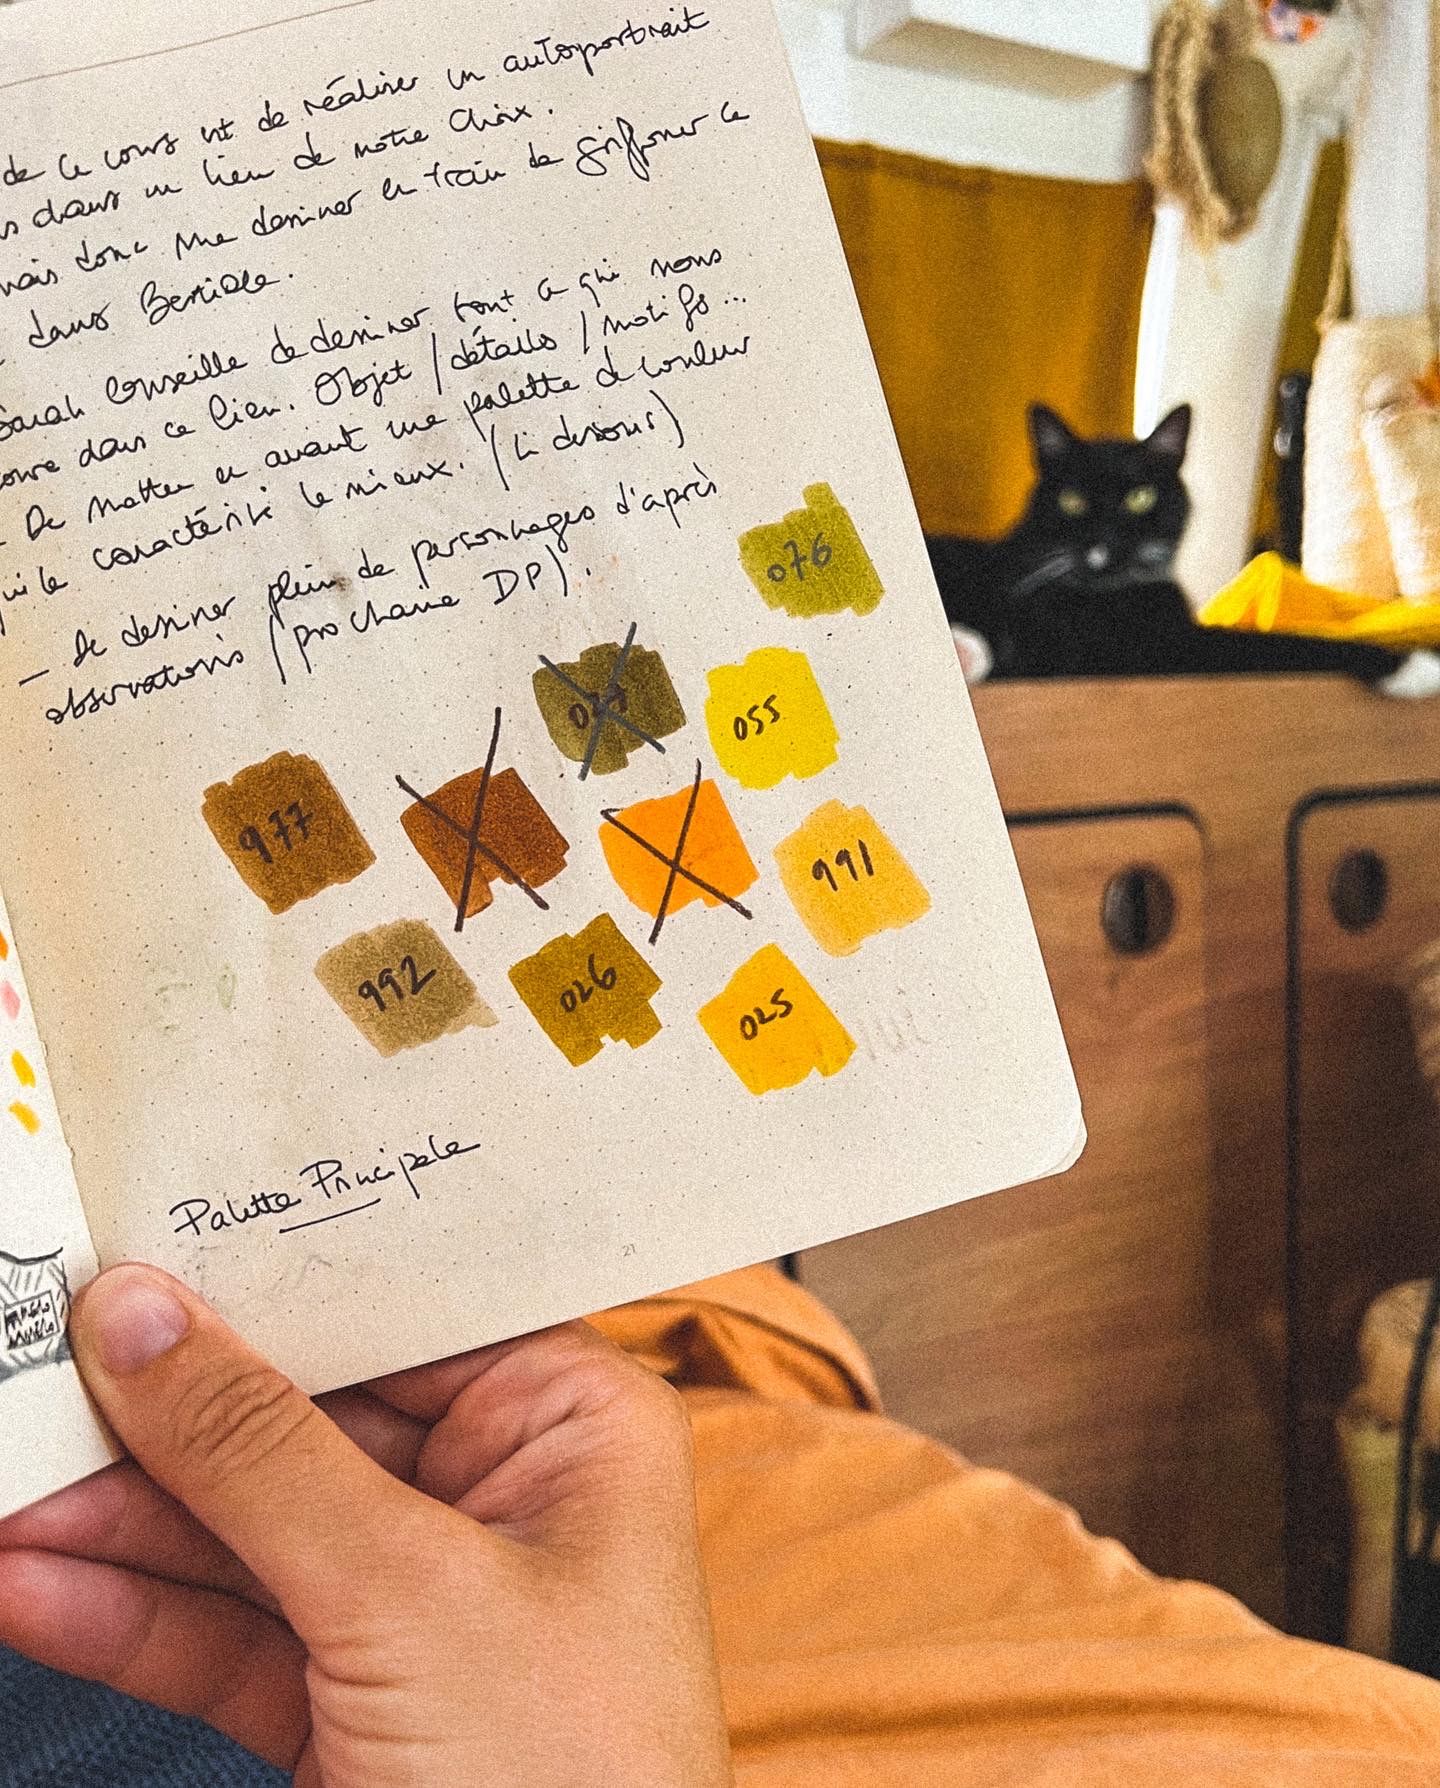 de ce cours est de réaliser un autoportrait
dans un lieu de notre choix.
donc me dessiner en train de griffoner ce
dans
Sarah conseille de dessiner tout ce qui nous
dans ce lieu. Objet / détails / motifs...
- De mettre en avant une palette de couleur
qui le caractérise le mieux. (Ci dessous)
- De dessiner plein de personnages d'après
observations (prochaine DP).
076
055
977
991
992
026
025
Palette Principale
21